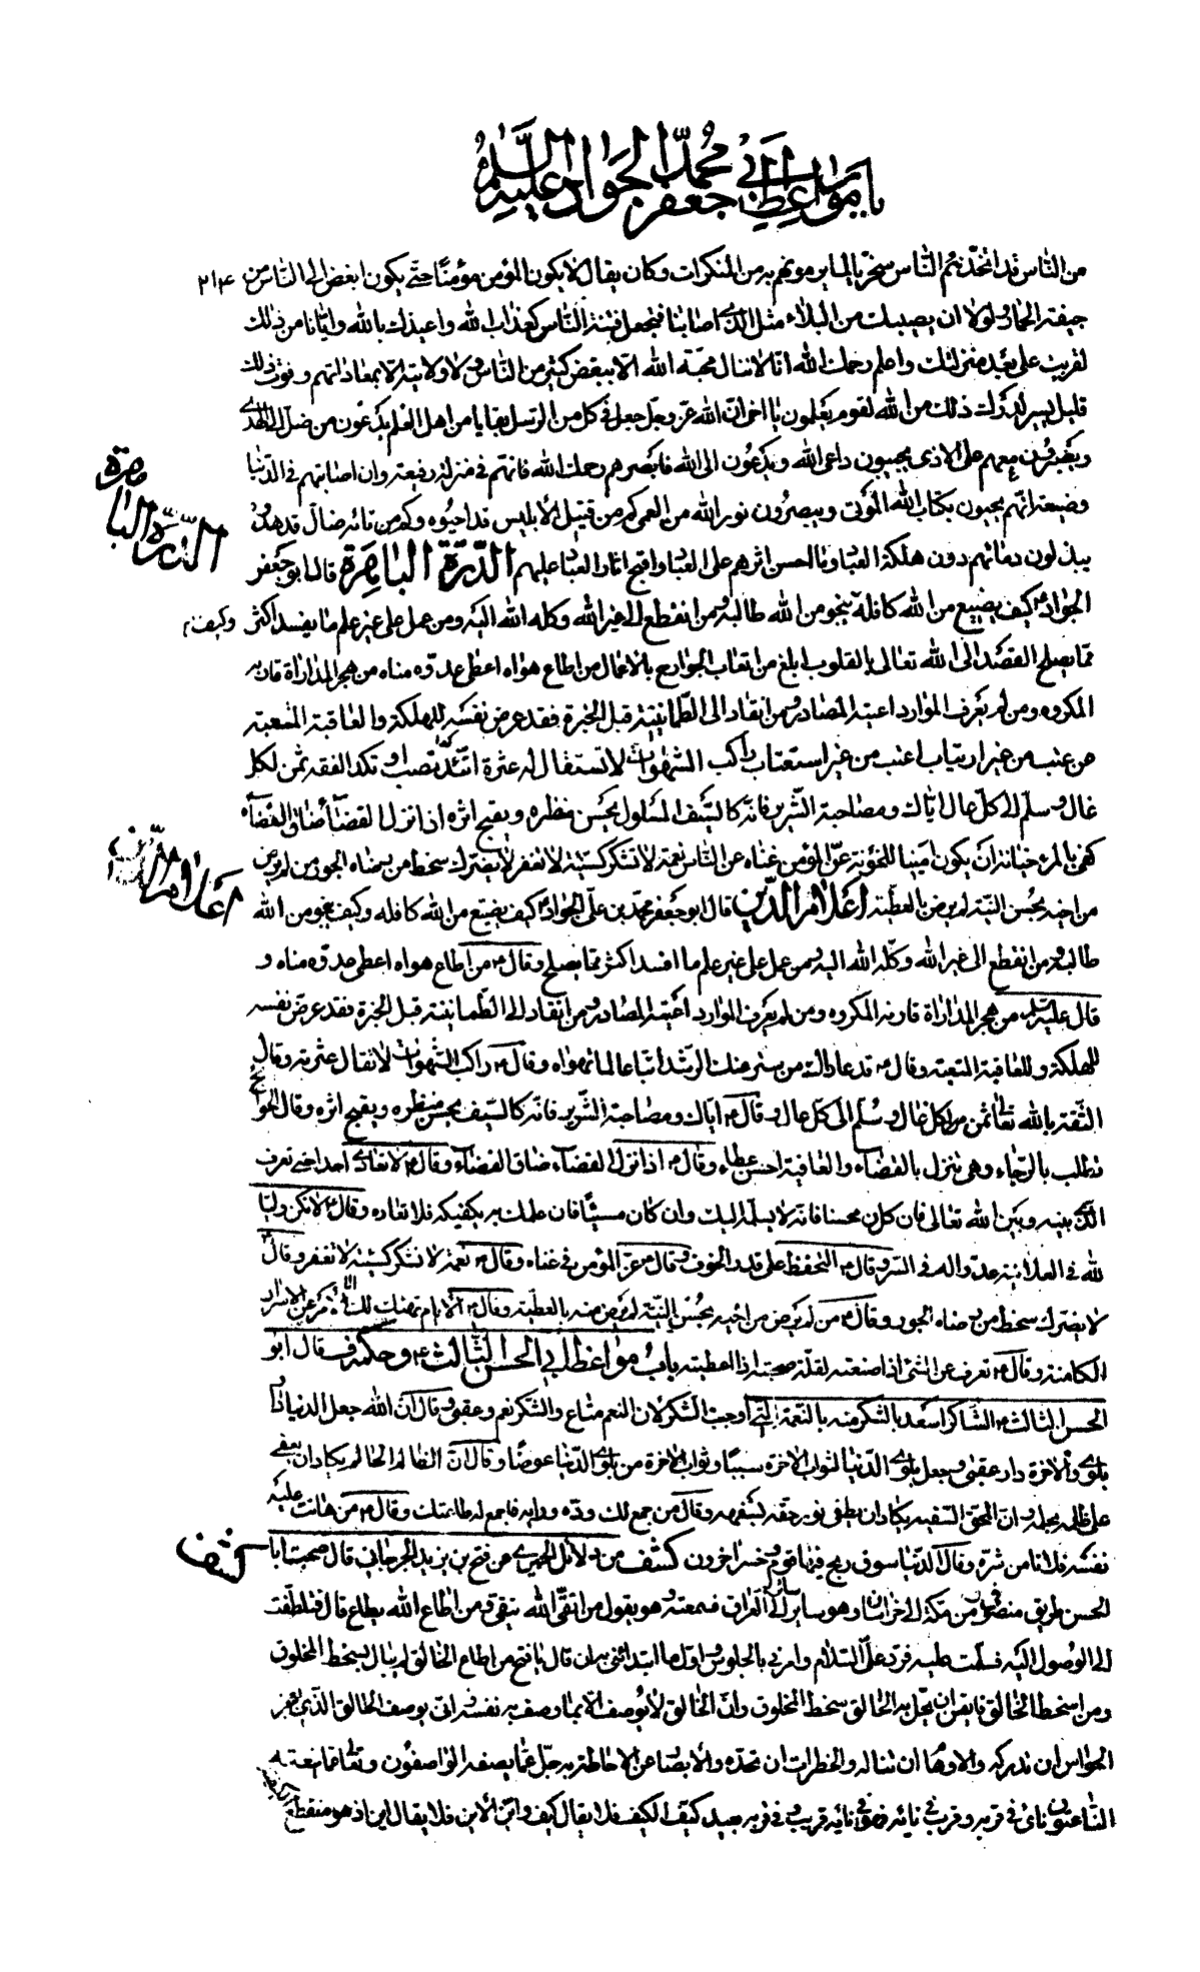 باب مواعظ أبي جعفر محمد بن الجواد عليه السلام
من الناس قد اتخذتهم الناس سخريا لما يرمونهم به من المنكرات وكان يقال لا يكون المؤمن مؤمنا حتى يكون ابغض الى الناس من ٢١٤
جيفة الحمار ولولا ان يصيبك من البلاء مثل الذى اصابنا فتجعل فتنة الناس كعذاب الله واعيذك بالله وايانا من ذلك
لقربت على بعد منزلتك واعلم رحمك الله انا لا ننال محبة الله الا ببغض كثير من الناس ولا ولايته الا بمعاداتهم وفوت ذلك
قليل يسير لدرك ذلك من الله لقوم يعلمون يا اخى ان الله عز وجل جعل فى كل من الرسل بقايا من اهل العلم يدعون من ضل الى الهدى
ويصبرون معهم على الاذى يجيبون داعى الله ويدعون الى الله فابصرهم رحمك الله فانهم فى منزلة رفيعة وان اصابتهم فى الدنيا
وضيعة انهم يحيون بكتاب الله الموتى ويبصرون نور الله من العمى كم من قتيل لابليس قد احيوه وكم من تائه ضال قد هدوه
يبذلون دمائهم دون هلكة العباد وما احسن اثرهم على العباد واقبح اثار العباد عليهم الدرة الباهرة قال ابو جعفر
الدرة الباهرة
الجواد ع كيف يضيع من الله كافله وكيف ينجو من الله طالبه ومن انقطع الى غير الله وكله الله اليه ومن عمل على غير علم ما يفسد اكثر
مما يصلح القصد الى الله تعالى بالقلوب ابلغ من اتعاب الجوارح بالاعمال من اطاع هواه اعطى عدوه مناه من هجر المداراة قاربه
المكروه ومن لم يعرف الموارد اعيته المصادر ومن انقاد الى الطمانينة قبل الخبرة فقد عرض نفسه للهلكة والعاقبة المتعبة
من عتب من غير ارتياب اعتب من غير استعتاب راكب الشهوات لا تستقال له عثرة اتئد تصب او تكد الثقة ثمن لكل
غال وسلم الى كل عال اياك ومصاحبة الشرير فانه كالسيف المسلول يحسن منظره ويقبح اثره اذا نزل القضاء ضاق الفضاء
كفى بالمرء خيانة ان يكون امينا للخونة عز المؤمن غناه عن الناس نعمة لا تشكر كسيئة لا تغفر لا يضرك سخط من رضاه الجور من لم يرض
من اخيه بحسن النية لم يرض بالعطية اعلام الدين قال ابو جعفر محمد بن على الجواد ع كيف يضيع من الله كافله وكيف ينجو من الله
اعلام الدين
طالبه ومن انقطع الى غير الله وكله الله اليه ومن عمل على غير علم ما افسد اكثر مما يصلح وقال ع من اطاع هواه اعطى عدوه مناه و
قال عليه السلام من هجر المداراة قارنه المكروه ومن لم يعرف الموارد اعيته المصادر ومن انقاد الى الطمانينة قبل الخبرة فقد عرض نفسه
للهلكة وللعاقبة التعبة وقال ع قد عاداك من ستر عنك الرشد اتباعا لما تهواه وقال ع راكب الشهوات لا تقال عثرته وقال
الثقة بالله تعالى ثمن لكل غال وسلم الى كل عال وقال ع اياك ومصاحبة الشرير فانه كالسيف يحسن منظره ويقبح اثره وقال الحوائج
تطلب بالرجاء وهى تنزل بالقضاء والعافية احسن عطاء وقال ع اذا نزل القضاء ضاق الفضاء وقال ع لا تعادى احدا حتى تعرف
الذى بينه وبين الله تعالى فان كان محسنا فانه لا يسلمه اليك وان كان مسيئا فان علمك به يكفيكه فلا تعاده وقال ع لا تكن وليا
لله فى العلانية عدوا له فى السر وقال ع التحفظ على قدر الخوف وقال ع عز المؤمن فى غناه وقال ع نعمة لا تشكر كسيئة لا تغفر وقال ع
لا يضرك سخط من رضاه الجور وقال ع من لم يرض من اخيه بحسن النية لم يرض منه بالعطية وقال ع الايام تهتك لك الامر عن الاسرار
الكامنة وقال ع تعرف عن الشئ اذا صنعته لقلة صحبته اذا اعطيته باب مواعظ ابى الحسن الثالث ع وحكمه ف قال ابو
الحسن الثالث ع الشاكر اسعد بالشكر منه بالنعمة التى اوجبت الشكر لان النعم متاع والشكر نعم وعقبى وقال ان الله جعل الدنيا دار
بلوى والاخرة دار عقبى وجعل بلوى الدنيا لثواب الاخرة سببا وثواب الاخرة من بلوى الدنيا عوضا وقال ان الظالم الحالم يكاد ان يعفى
على ظلمه بحلمه وان المحق السفيه يكاد ان يطفى نور حقه بسفهه وقال من جمع لك وده ورايه فاجمع له طاعتك وقال ع من هانت عليه
نفسه فلا تامن شره وقال الدنيا سوق ربح فيها قوم وخسر اخرون كشف من دلائل الحميرى عن فتح بن يزيد الجرجانى قال ضمنى وابا
كشف
الحسن طريق منصرفى من مكة الى خراسان وهو سائر الى العراق فسمعته وهو يقول من اتقى الله يتقى ومن اطاع الله يطاع قال فتلطفت
الى الوصول اليه فسلمت عليه فرد على السلام وامرنى بالجلوس واول ما ابتدانى به ان قال يا فتح من اطاع الخالق لم يبال بسخط المخلوق
ومن اسخط الخالق فايقن ان يحل به الخالق سخط المخلوق وان الخالق لا يوصف الا بما وصف به نفسه وانى يوصف الخالق الذى تعجز
الحواس ان تدركه والاوهام ان تناله والخطرات ان تحده والابصار عن الاحاطة به جل عما يصفه الواصفون وتعالى عما ينعته
الناعتون نائ فى قربه وقرب فى نائه فهو فى نائه قريب وفى قربه بعيد كيف الكيف فلا يقال كيف واين الاين فلا يقال اين اذ هو منقطع